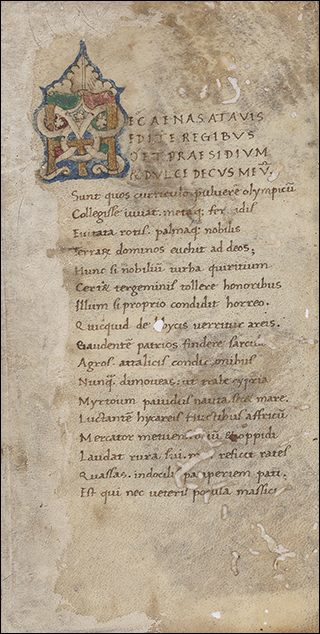 MECAENAS ATAVIS
EDITE REGIBUS
O ET PRAESIDIUM
& DULCE DECUS MEŪ.
Sunt quos curriculo pulvere olympicū
Collegisse iuvat. metaq; fer idis
Evitata rotis. palmaq; nobilis
Terrarū dominos evehit ad deos;
Hunc si nobiliū turba quiritium
Certat tergeminis tollere honoribus
Illum si proprio condidit horreo.
Quicquid de lybycis verritur areis.
Gaudentē patrios findere sarcu
Agros. attalicis condicionibus
Nunq̄. dimoveas: ut trabe cypria
Myrtoum pavidus nauta secet mare.
Luctantē hycareis fluctibus affricū
Mercator metuens otiū & oppidi
Laudat rura sui. mox reficit rates
Quassas. indocilis pauperiem pati.
Est qui nec veteris pocula massici